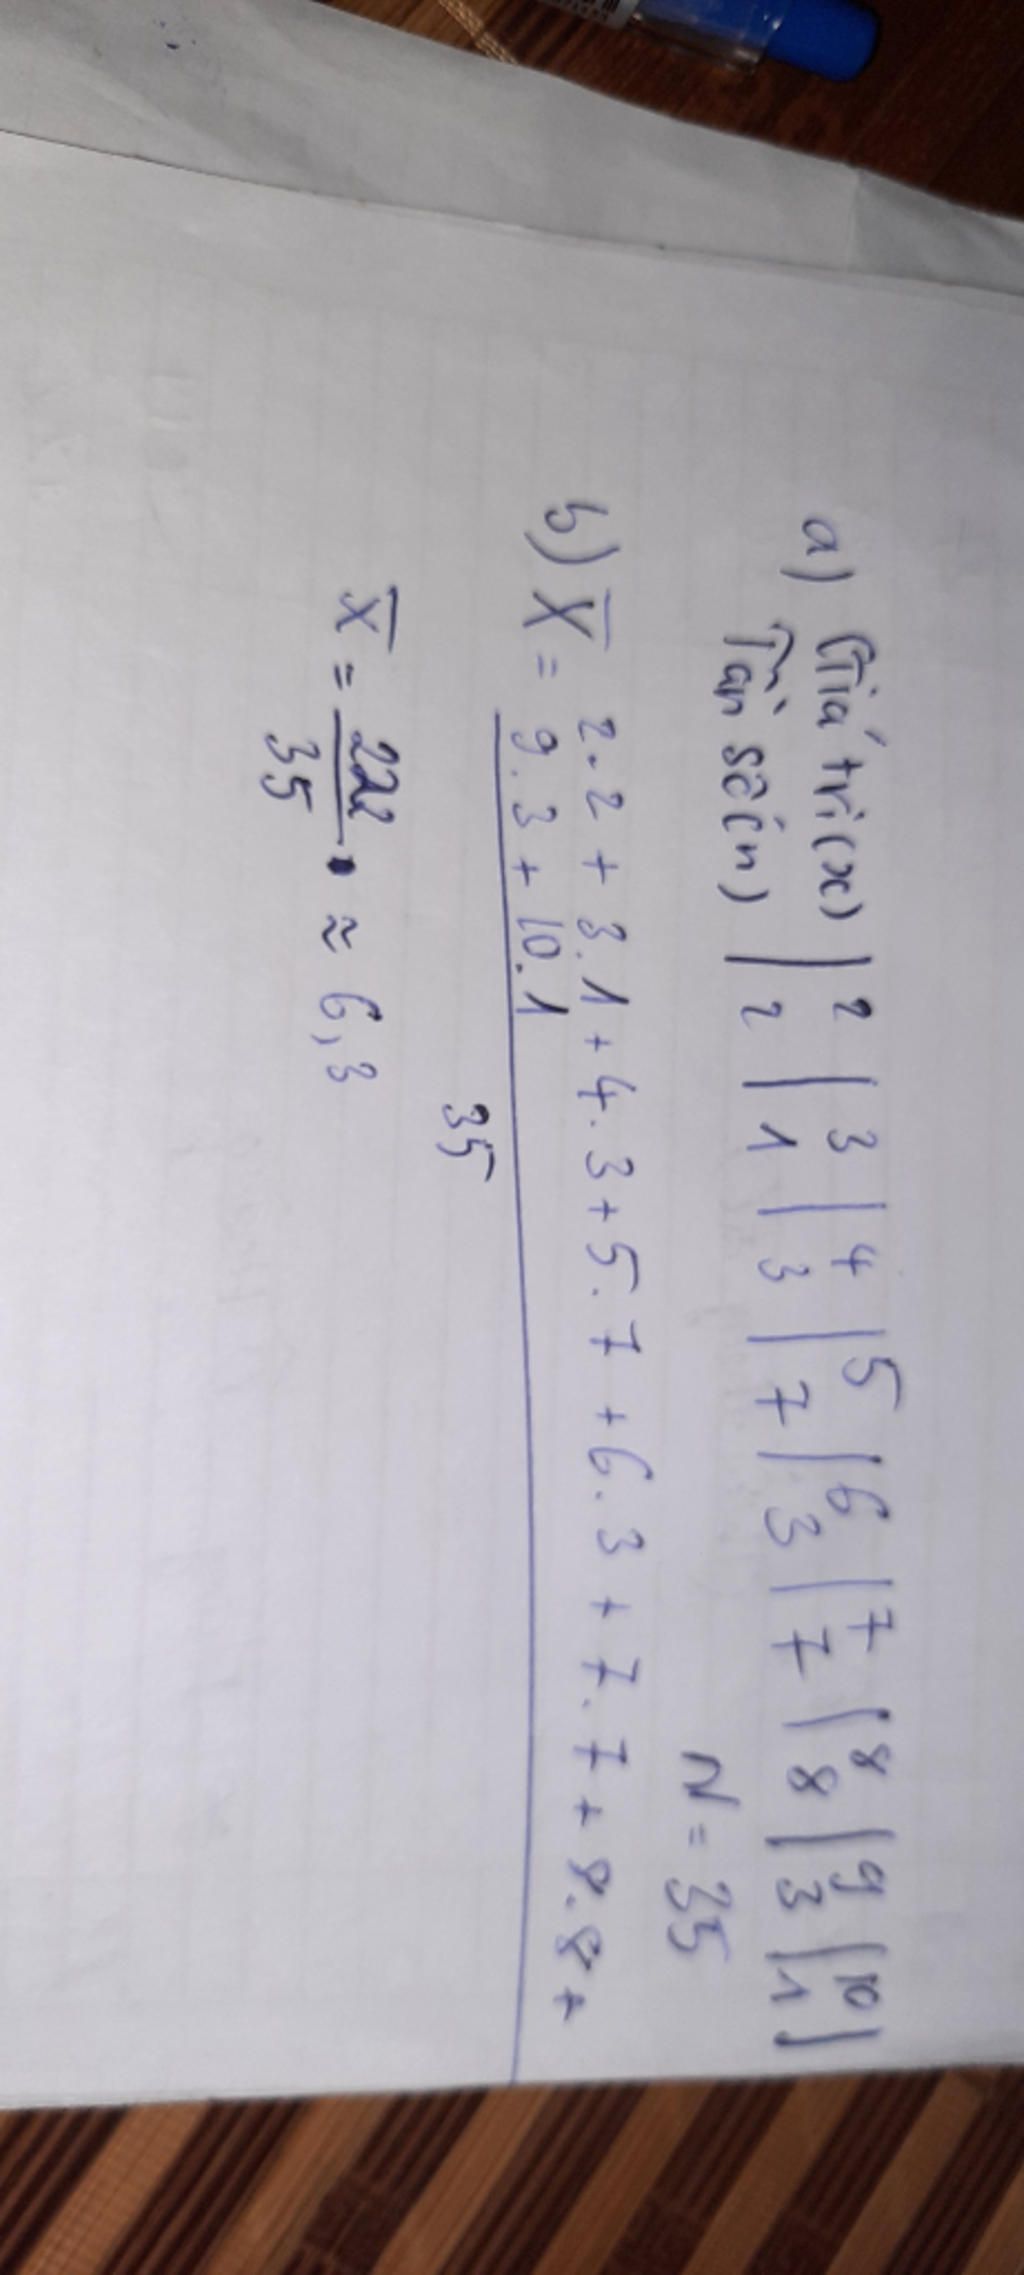 a) Giá trị (x) | 2 | 3 | 4 | 5 | 6 | 7 | 8 | 9 | 10 |
Tần số (n) | 2 | 1 | 3 | 7 | 3 | 7 | 8 | 3 | 1 |
N = 35
b) X̄ = 2.2 + 3.1 + 4.3 + 5.7 + 6.3 + 7.7 + 8.8 +
9.3 + 10.1
35
X̄ = 222/35 ≈ 6,3